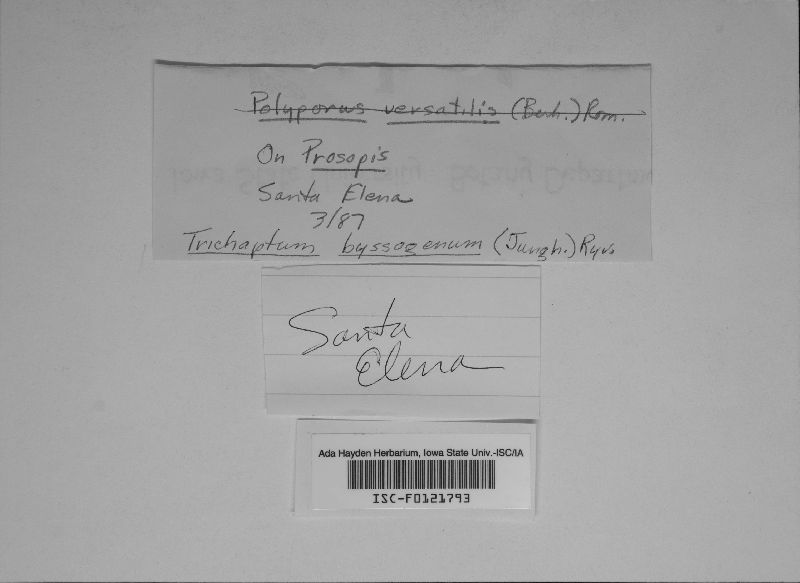 Polyporus versatilis (Berk.) Rom.
On Prosopis
Santa Elena
3/87
Trichaptum byssogenum (Jungh.) Ryv.
Santa
Elena
Ada Hayden Herbarium, Iowa State Univ.-ISC/IA
ISC-F0121793